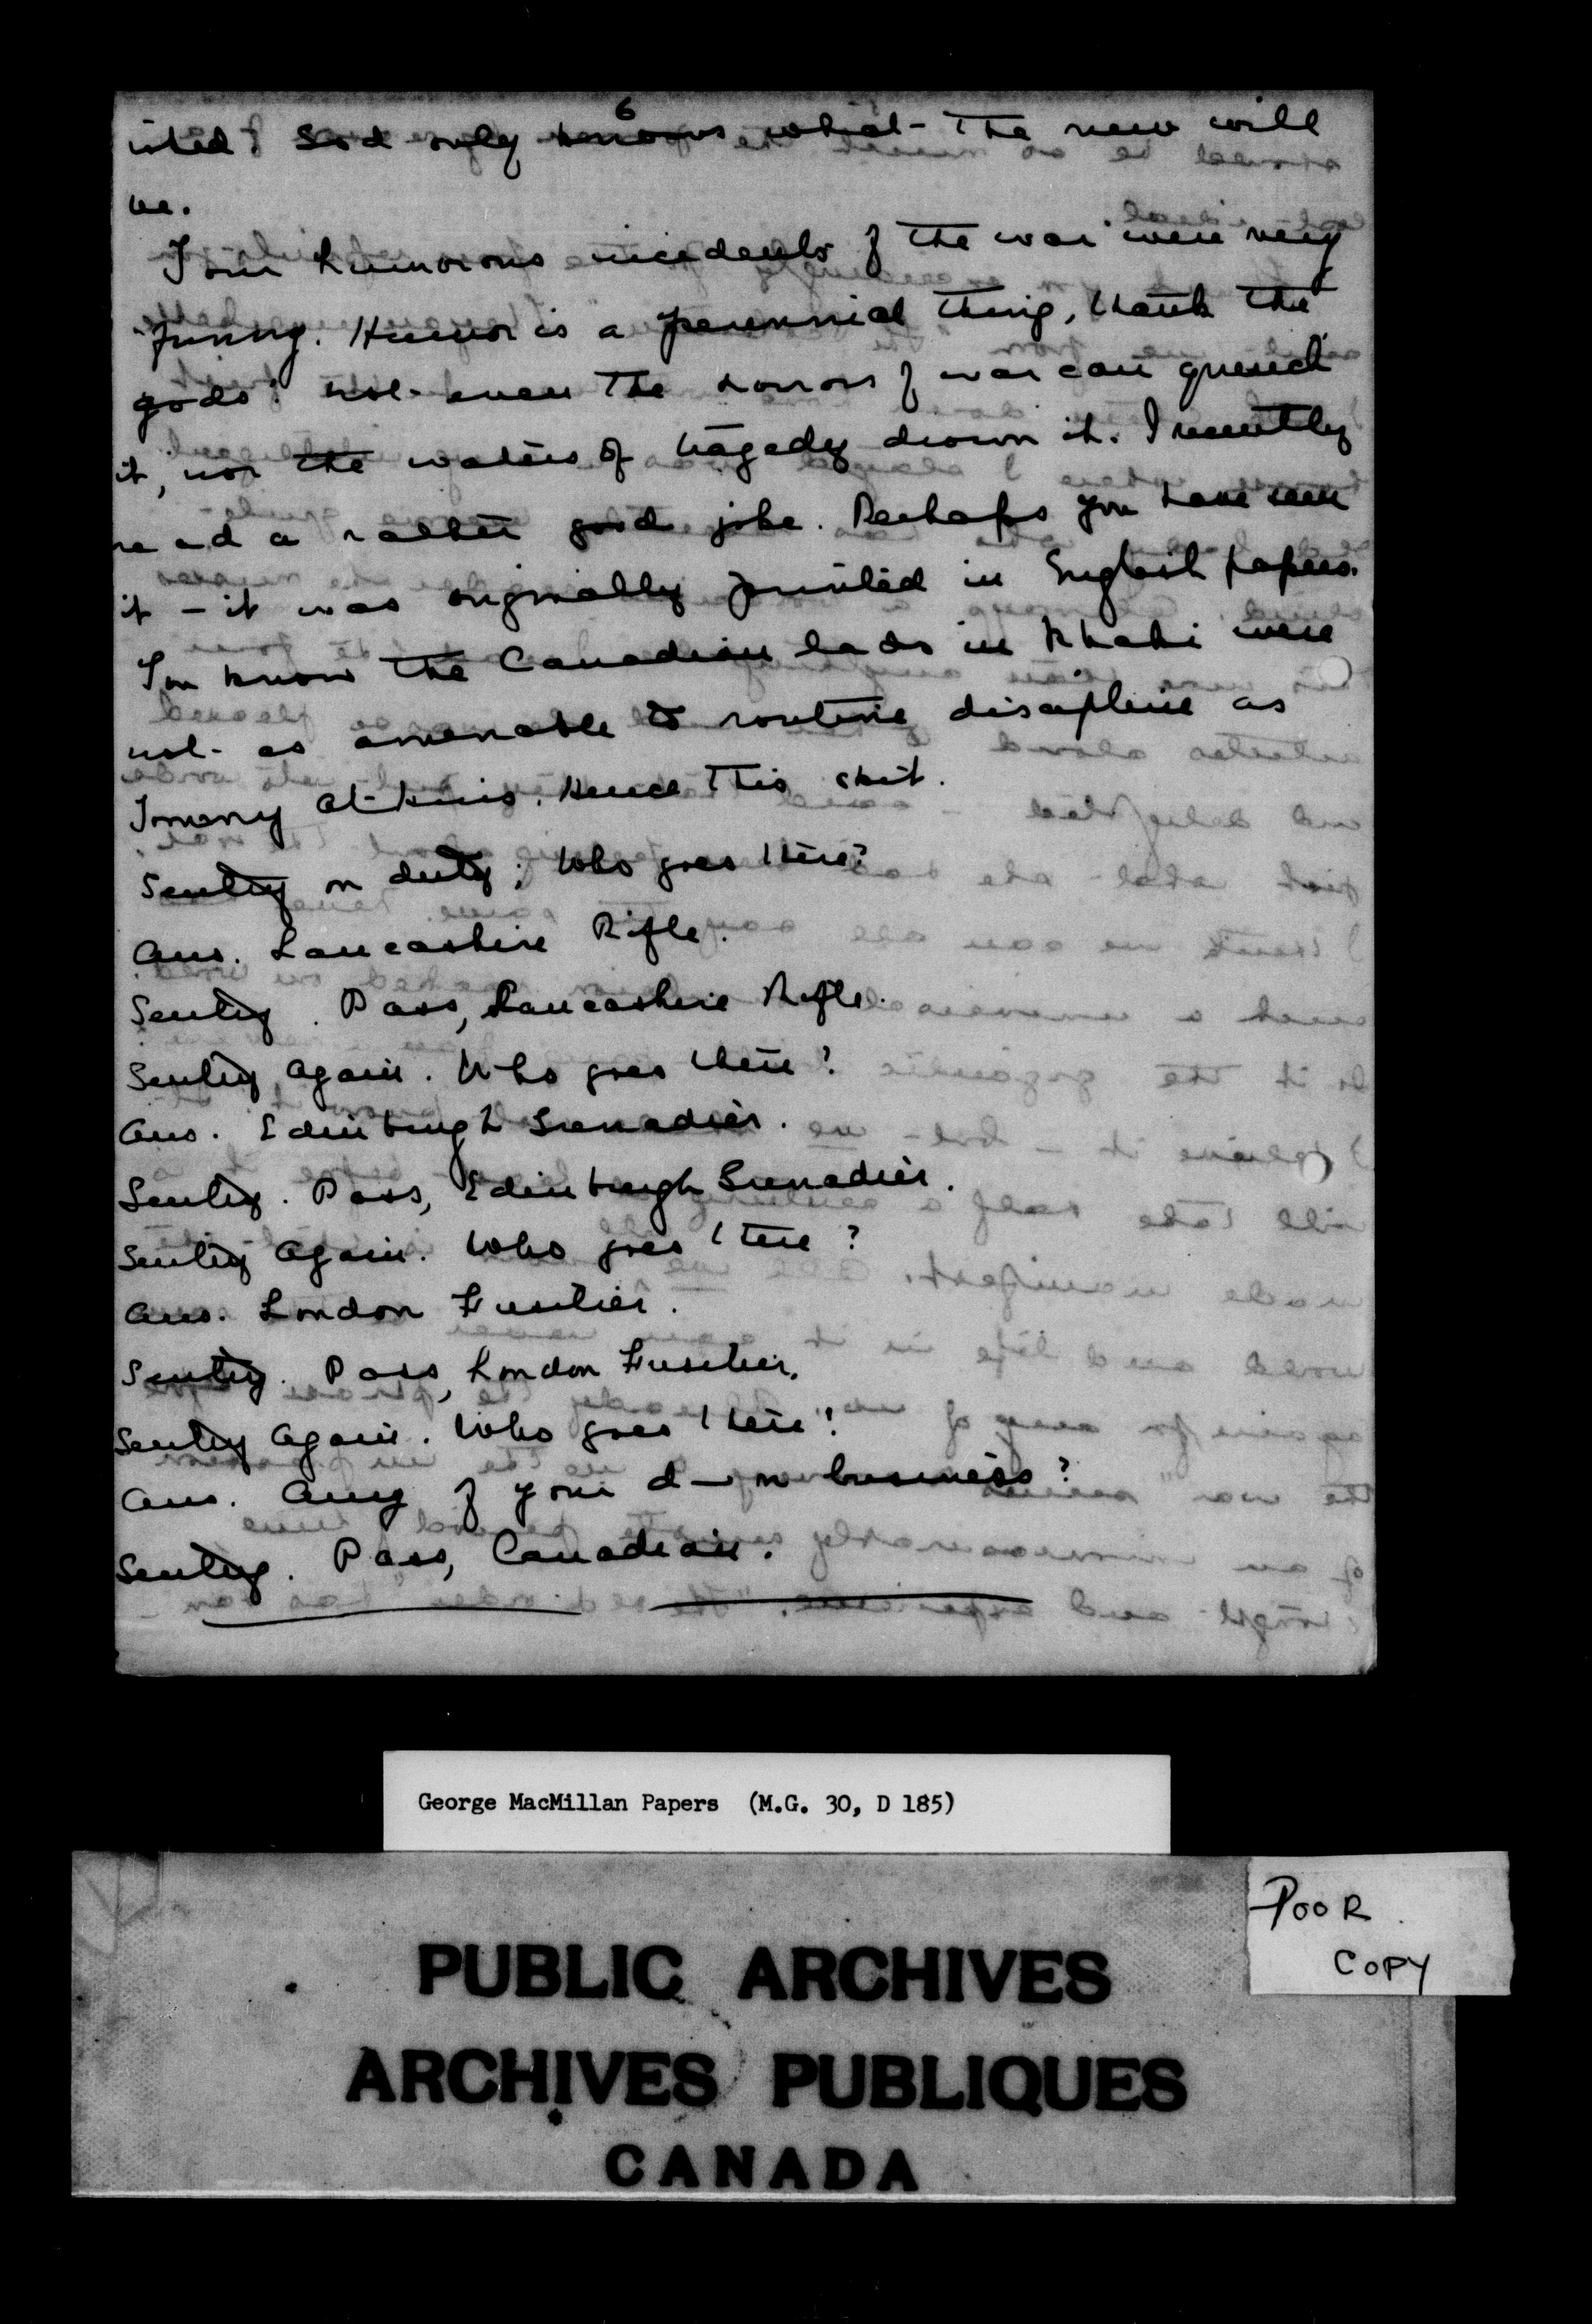 6
ished; God only knows what the new will
be.
Your humorous incidents of the war were very
funny. Humor is a perennial thing, thank the
gods: not even the horrors of war can quench
it, nor the waters of tragedy drown it. I recently
read a rather good joke. Perhaps you have seen
it - it was originally printed in English papers.
You know the Canadian lads in Khaki were
not as amenable to routine discipline as
Tommy Atkins. Hence this skit.
Sentry on duty; Who goes there?
Ans. Lancashire Rifle.
Sentry. Pass, Lancashire Rifle.
Sentry again. Who goes there?
Ans. Edinburgh Grenadier.
Sentry. Pass, Edinburgh Grenadier.
Sentry again. Who goes there?
Ans. London Fusilier.
Sentry. Pass, London Fusilier.
Sentry again. Who goes there?
Ans. Any of your d—n business?
Sentry. Pass, Canadian.
George MacMillan Papers (M.G. 30, D 185)
POOR
COPY
PUBLIC ARCHIVES
ARCHIVES PUBLIQUES
CANADA